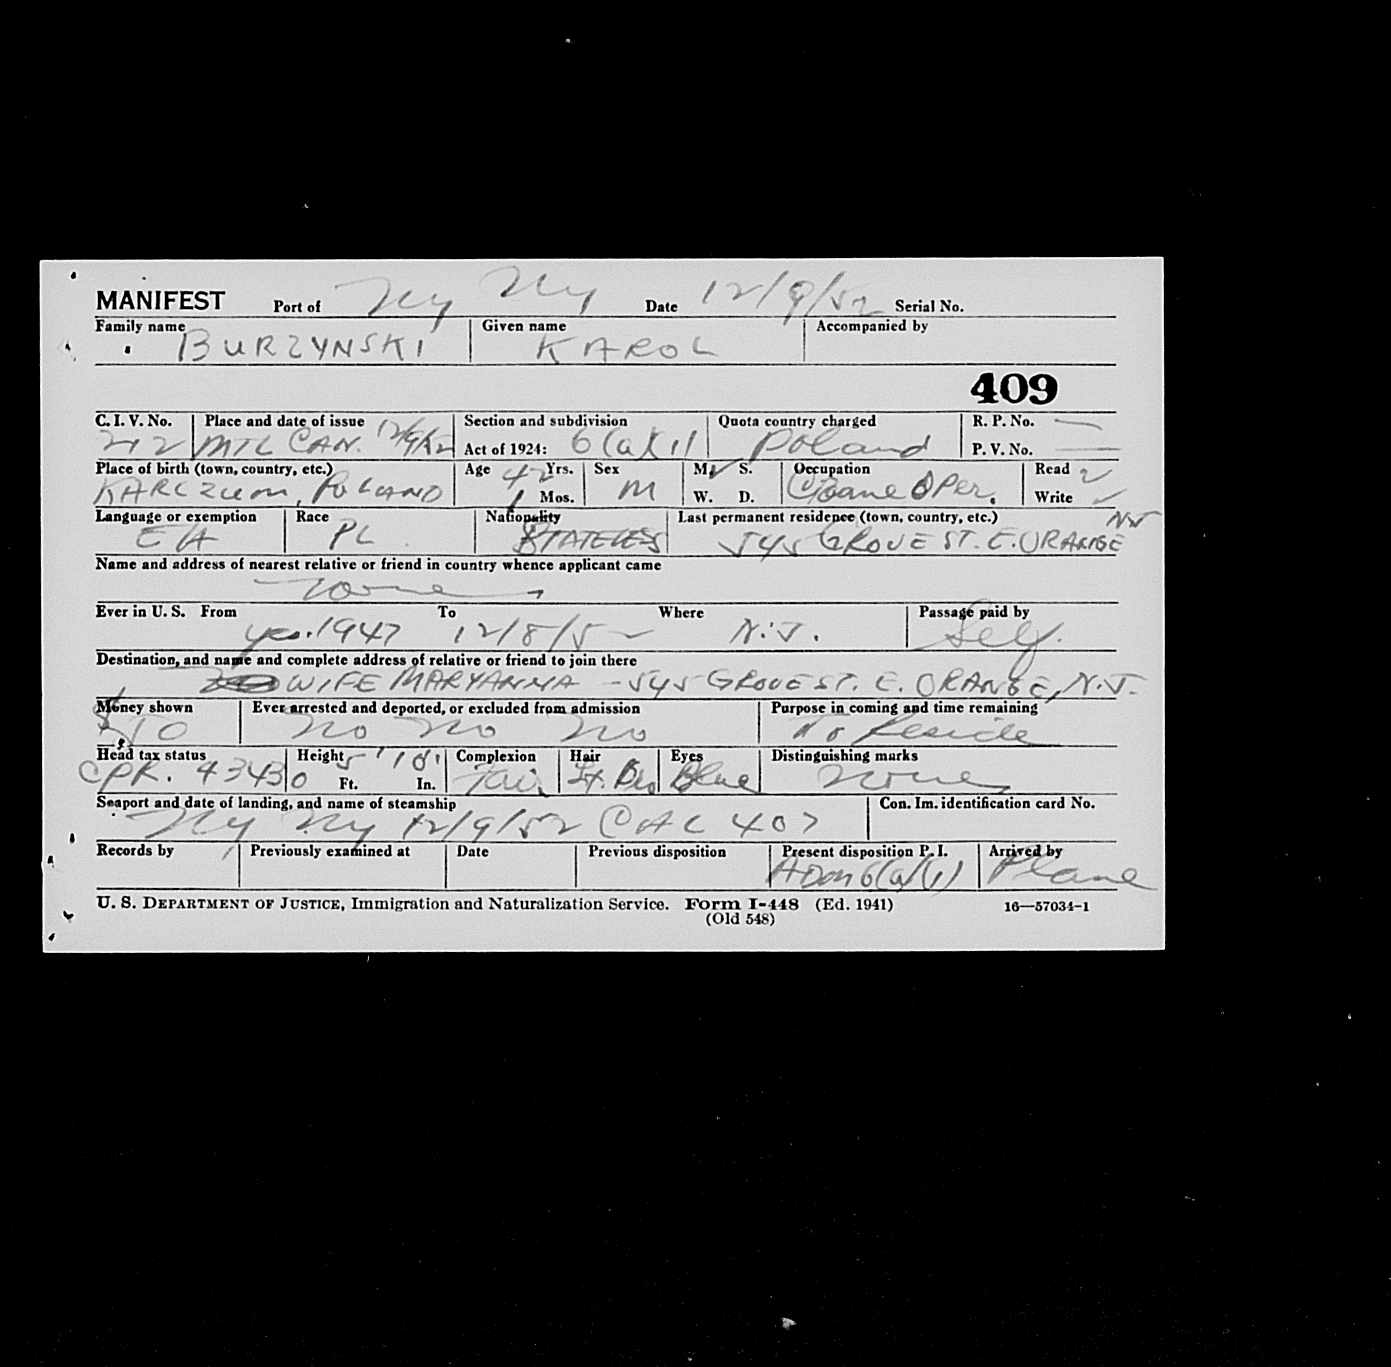 MANIFEST Port of NY NY Date 12/9/52 Serial No.
Family name BURZYNSKI Given name KAROL Accompanied by
409
C. I. V. No. 212 Place and date of issue MTL CAN. 12/9/52 Section and subdivision Act of 1924: 6(a)(1) Quota country charged Poland R. P. No. — P. V. No. —
Place of birth (town, country, etc.) POLAND Age 42 Yrs. 1 Mos. Sex M M. ✓ S. W. D. Occupation Crane Oper. Read ✓ Write ✓
Language or exemption E/A Race PL Nationality STATELESS Last permanent residence (town, country, etc.) 545 GROVE ST. E. ORANGE NJ
Name and address of nearest relative or friend in country whence applicant came
none
Ever in U. S. From yes. 1947 To 12/8/52 Where N.J. Passage paid by Self.
Destination, and name and complete address of relative or friend to join there
WIFE MARYANNA - 545 GROVE ST. E. ORANGE, N.J.
Money shown $50 Ever arrested and deported, or excluded from admission No No No Purpose in coming and time remaining To Reside
Head tax status CPR. 43430 Height 5' Ft. 10" In. Complexion Fair Hair Lt. Bro Eyes Blue Distinguishing marks none
Seaport and date of landing, and name of steamship NY NY 12/9/52 CAL 407 Con. Im. identification card No.
Records by Previously examined at Date Previous disposition Present disposition P. I. Adm 6(a)(1) Arrived by Plane
U. S. DEPARTMENT OF JUSTICE, Immigration and Naturalization Service. Form I-448 (Ed. 1941) 16—57034-1
(Old 548)